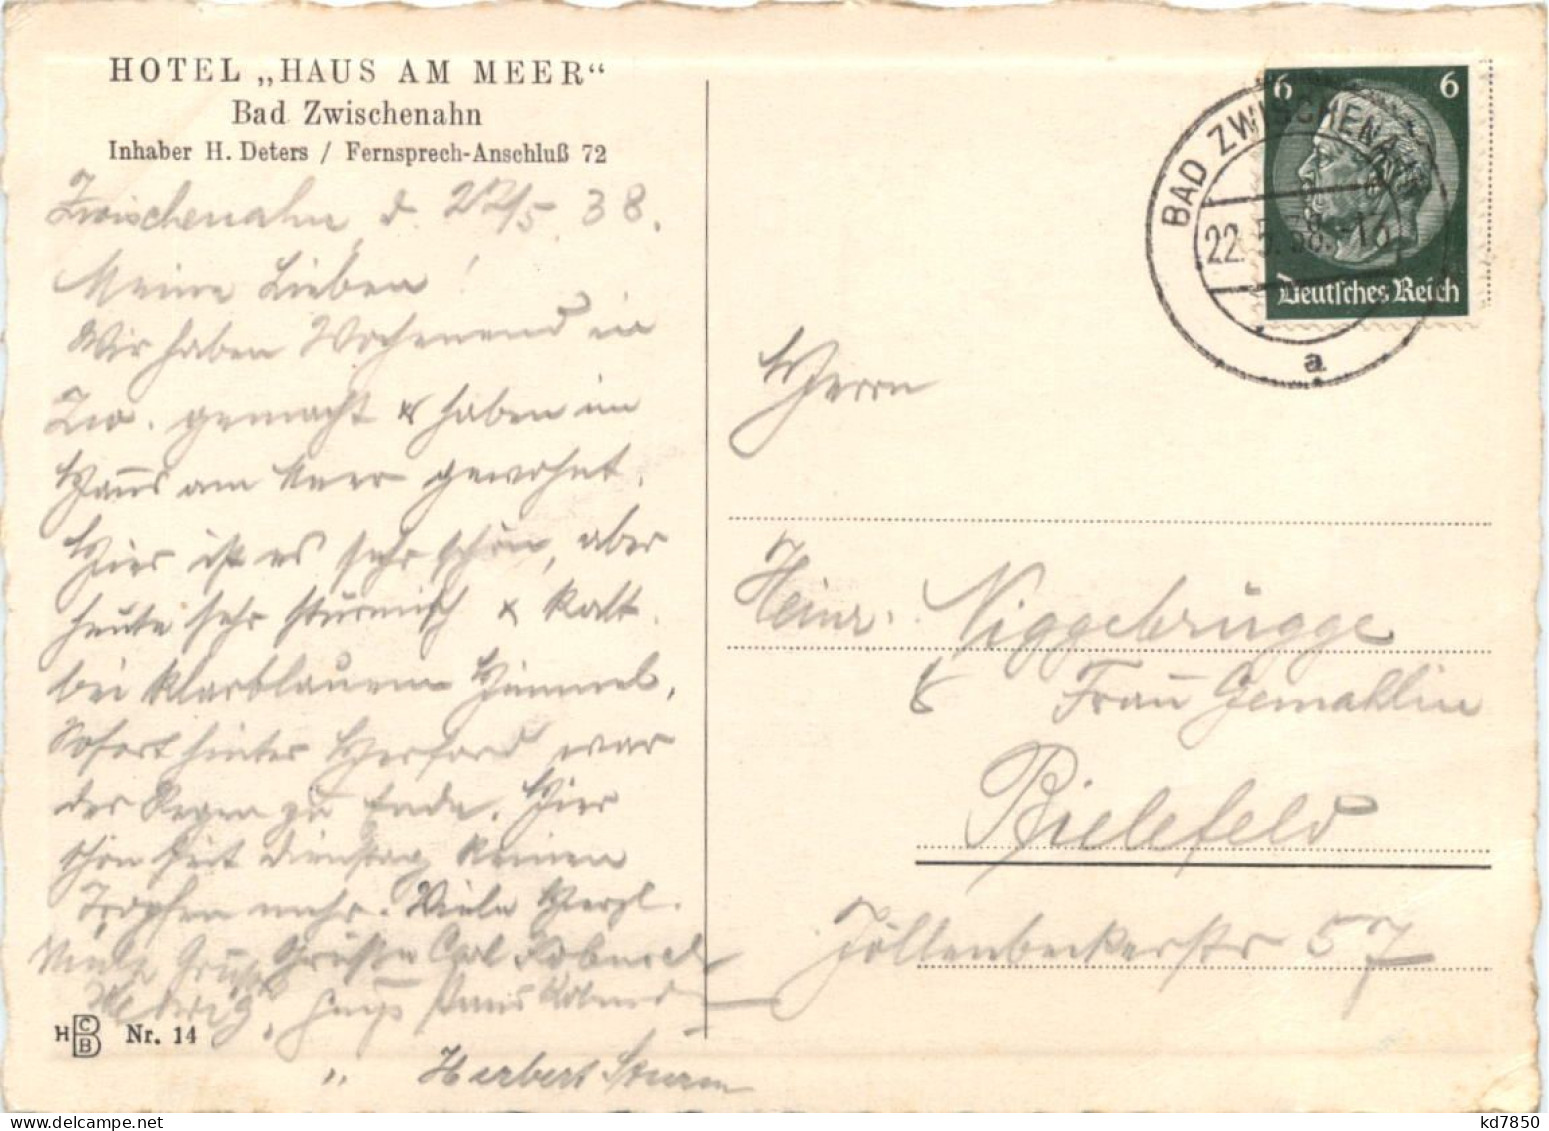 HOTEL „HAUS AM MEER“
Bad Zwischenahn
Inhaber H. Deters / Fernsprech-Anschluß 72
Zwischenahn d. 22/5.38.
Meine Lieben!
Wir haben Wochenend in
Zw. gemacht & haben im
Haus am Meer gewohnt.
Hier ist es sehr schön, aber
heute sehr stürmisch & kalt
bei klarblauem Himmel.
Sofort hinter Herford war
der Regen zu Ende. Hier
schon seit Dienstag keinen
Tropfen mehr. Viele Herzl.
Grüße Carl
Viele Grüße
Hedwig,
" Herbert Sturm
HCBB Nr. 14
6 6
Deutsches Reich
BAD ZWISCHENAHN
22.5.38.-16
a
Herrn
Heinr. Niggebrügge
& Frau Gemahlin
Bielefeld
Jöllenbeckerstr 57
kd7850